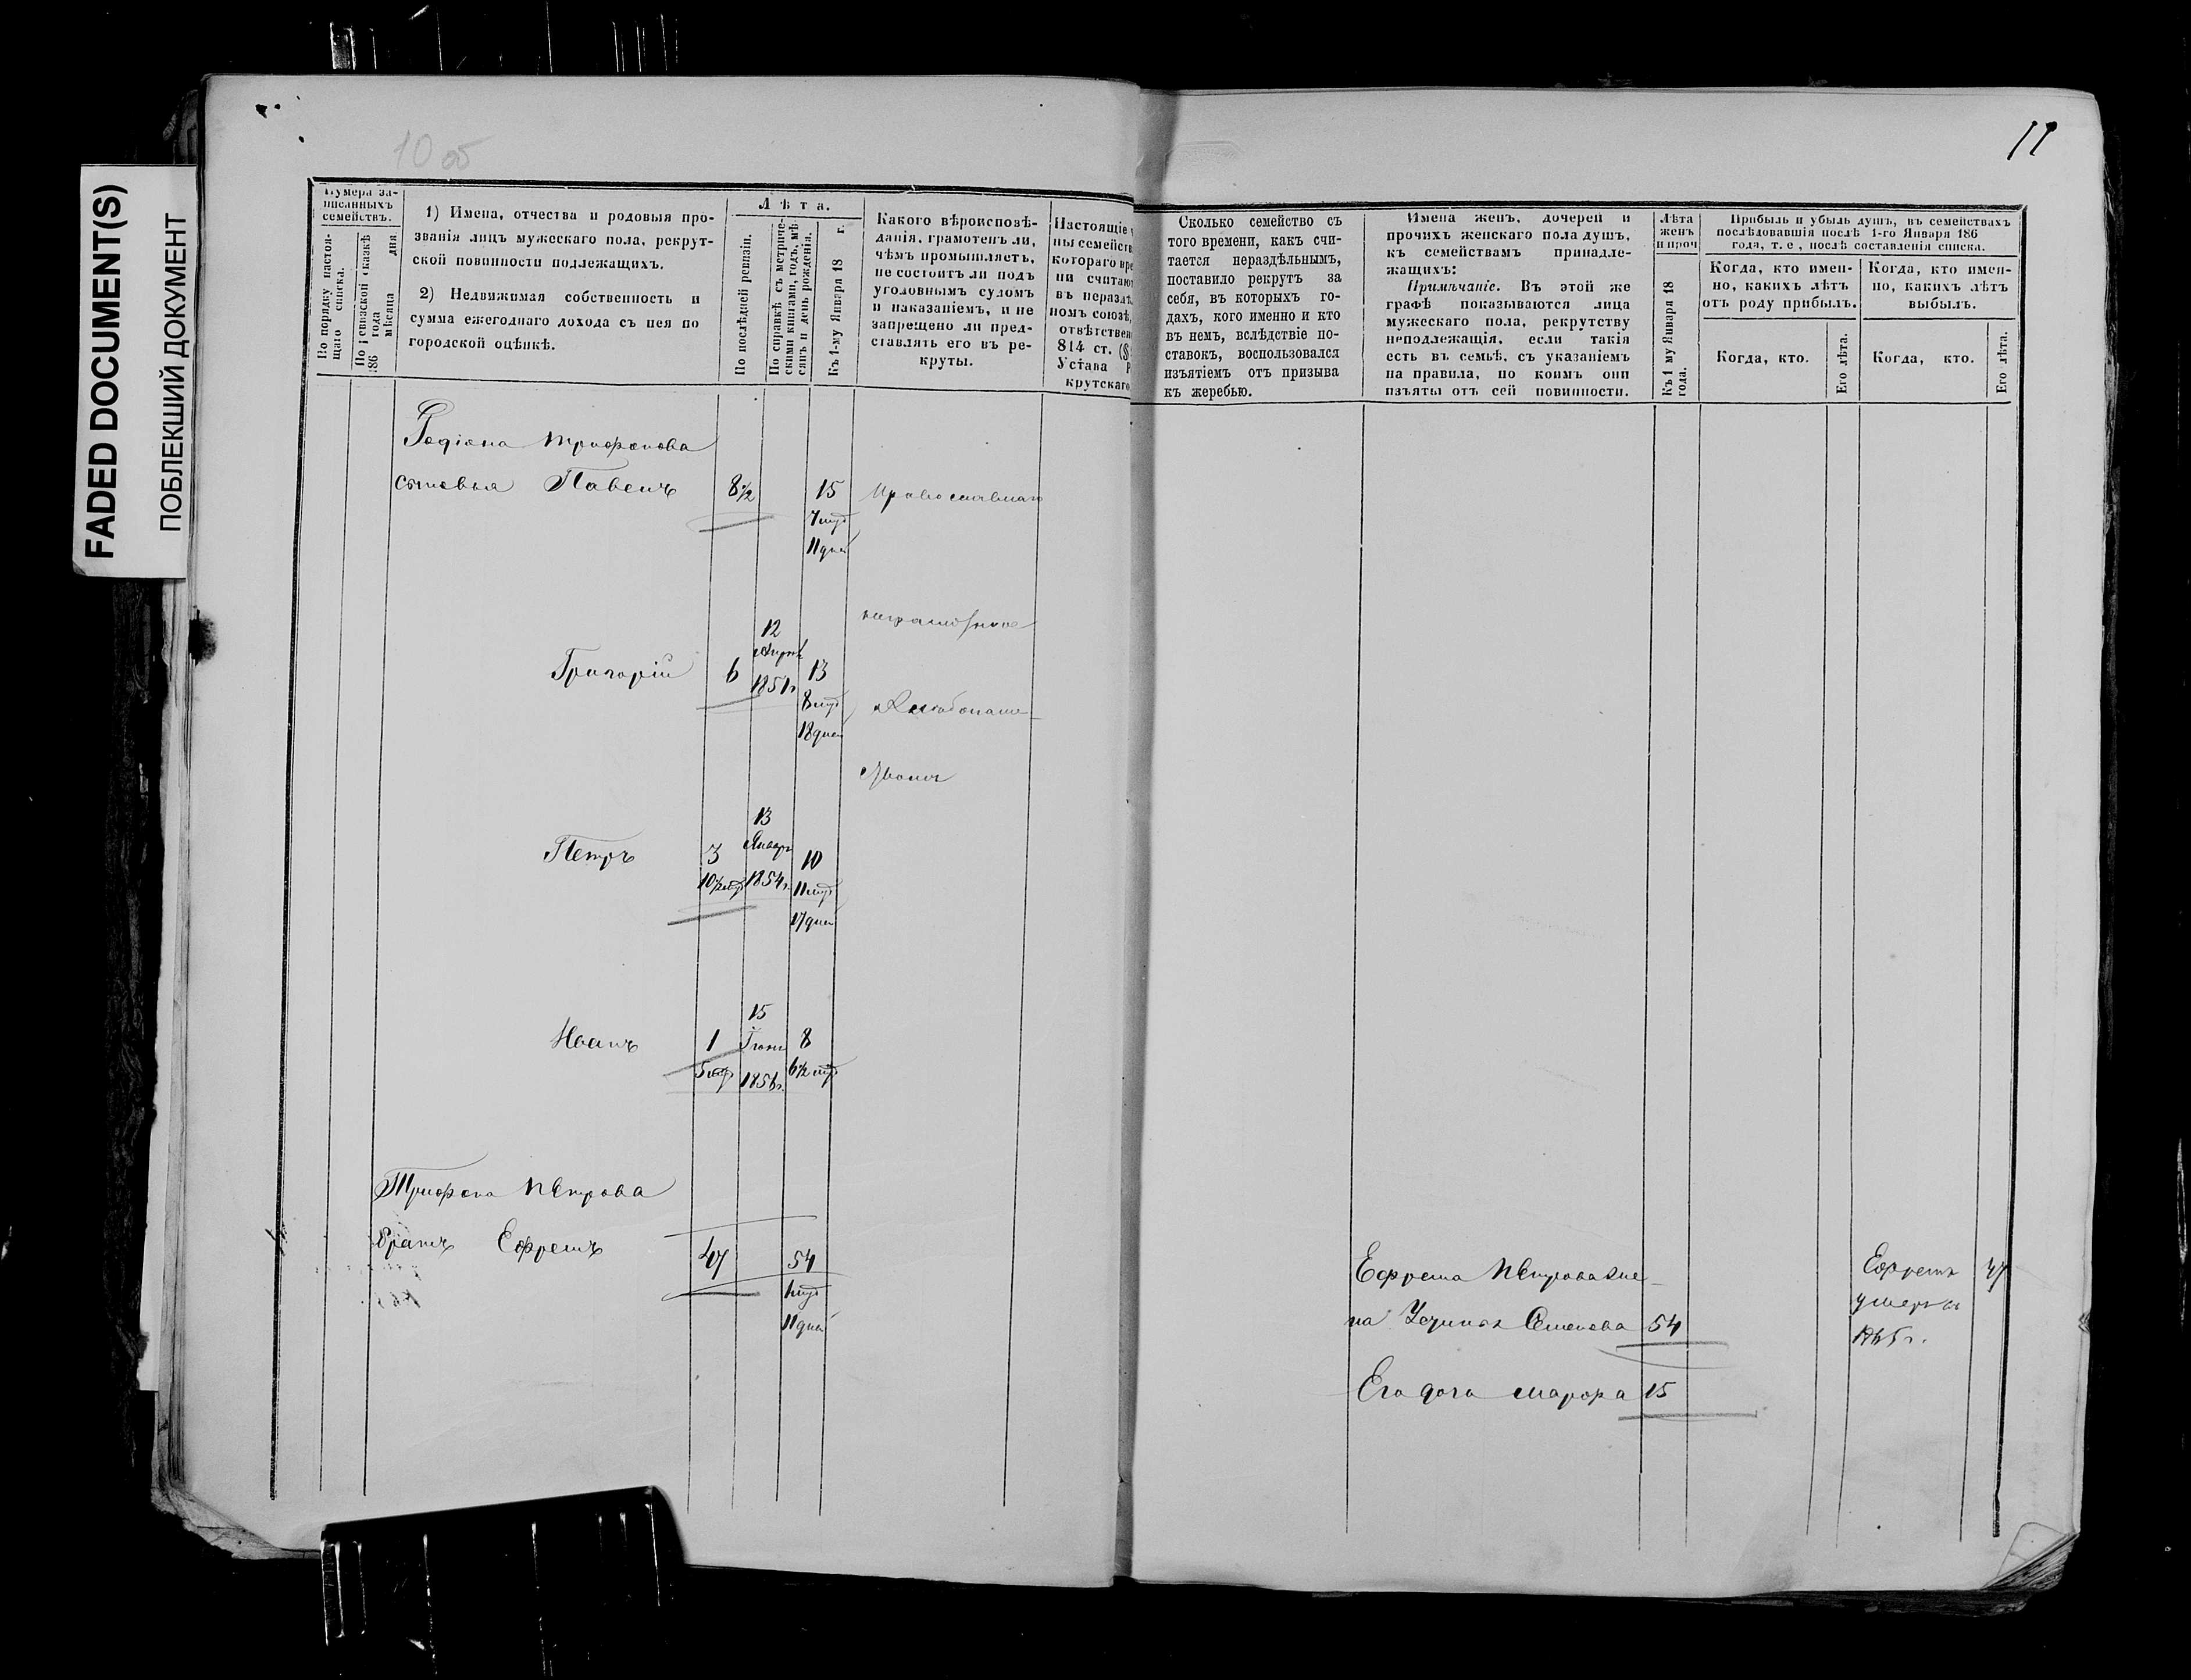 FADED DOCUMENT(S)
ПОБЛЕКШИЙ ДОКУМЕНТ
10 об
11
Нумера за-
писанныхъ
семействъ.
По порядку настоя-
щаго списка.
По ревизской сказкѣ
186 года
мѣсяца дня
1) Имена, отчества и родовыя про-
званія лицъ мужескаго пола, рекрут-
ской повинности подлежащихъ.
2) Недвижимая собственность и
сумма ежегоднаго дохода съ нея по
городской оцѣнкѣ.
Лѣта.
По послѣдней ревизіи.
По справкѣ съ метриче-
скими книгами, годъ, мѣ-
сяцъ и день рожденія.
Къ 1-му Января 18 г.
Какого вѣроисповѣ-
данія, грамотенъ ли,
чѣмъ промышляетъ,
не состоитъ ли подъ
уголовнымъ судомъ
и наказаніемъ, и не
запрещено ли пред-
ставлять его въ ре-
круты.
Настоящіе
ны семейств
котораго вре
ни считаю
въ неразд
номъ союзѣ,
отвѣтствен
814 ст. (§
Устава Р
крутскаго.
Сколько семейство съ
того времени, какъ счи-
тается нераздѣльнымъ,
поставило рекрутъ за
себя, въ которыхъ го-
дахъ, кого именно и кто
въ немъ, вслѣдствіе по-
ставокъ, воспользовался
изъятіемъ отъ призыва
къ жеребью.
Имена женъ, дочерей и
прочихъ женскаго пола душъ,
къ семействамъ принадле-
жащихъ:
Примѣчаніе. Въ этой же
графѣ показываются лица
мужескаго пола, рекрутству
неподлежащія, если такія
есть въ семьѣ, съ указаніемъ
на правила, по коимъ они
изъяты отъ сей повинности.
Лѣта
женъ
и проч
Къ 1 му Января 18
года.
Прибыль и убыль душъ, въ семействахъ
послѣдовавшія послѣ 1-го Января 186
года, т. е., послѣ составленія списка.
Когда, кто имен-
но, какихъ лѣтъ
отъ роду прибылъ.
Когда, кто имен-
но, какихъ лѣтъ
выбылъ.
Когда, кто.
Его лѣта.
Когда, кто.
Его лѣта.
Родіона Трифонова
сыновья Павелъ 8½ 15
7 мѣс
11 дней
Православнаго
неграмотные
12
Григорій 6 Апрѣл 13
1851г 8 мѣс
18 дней
Хлебопаше-
ствомъ
13
Петръ 3 Январ 10
10½ мѣс 1854г. 11 мѣс
17 дней
15
Иванъ 1 Іюня 8
5 мѣс 1856г. 6½ мѣс
Трифона Петрова
братъ Ефремъ 47 54
11 дней
Ефрема Петрова же-
на Семенова 54
Его дочь Марфа 15
Ефремъ 47
умеръ въ